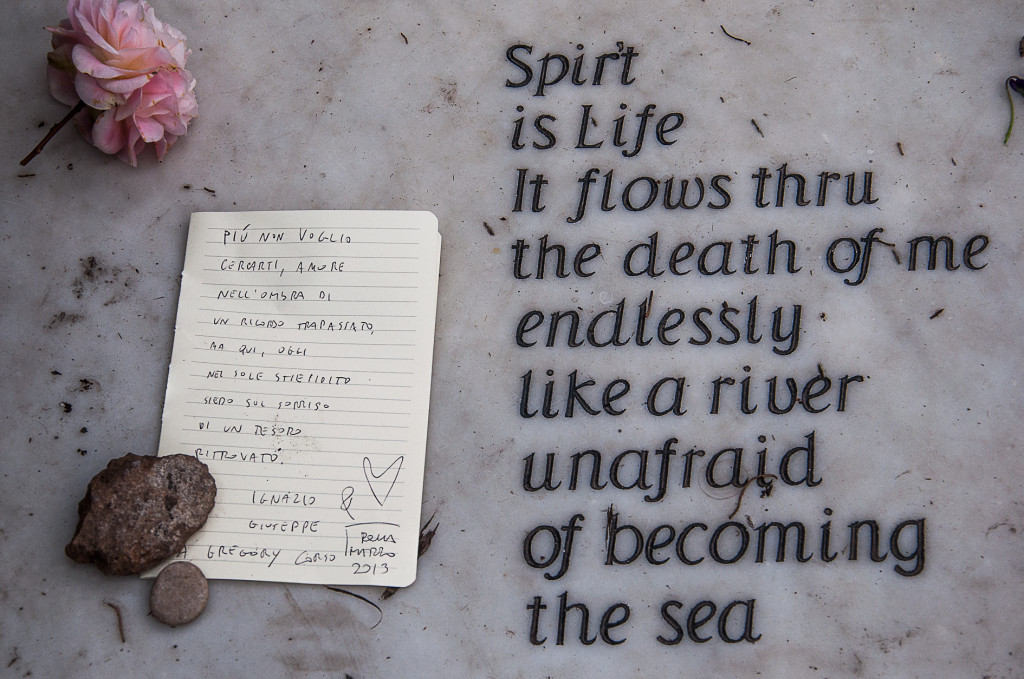 Spirit
is Life
It flows thru
the death of me
endlessly
like a river
unafraid
of becoming
the sea
PIÚ NON VOGLIO
CERCARTI, AMORE
NELL'OMBRA DI
UN RICORDO TRAPASSATO,
MA QUI, OGGI
NEL SOLE STIEPIDITO
SIEDO SUL SORRISO
DI UN TESORO
RITROVATO.
IGNAZIO &
GIUSEPPE
A GREGORY CORSO
ROMA
MARZO
2013